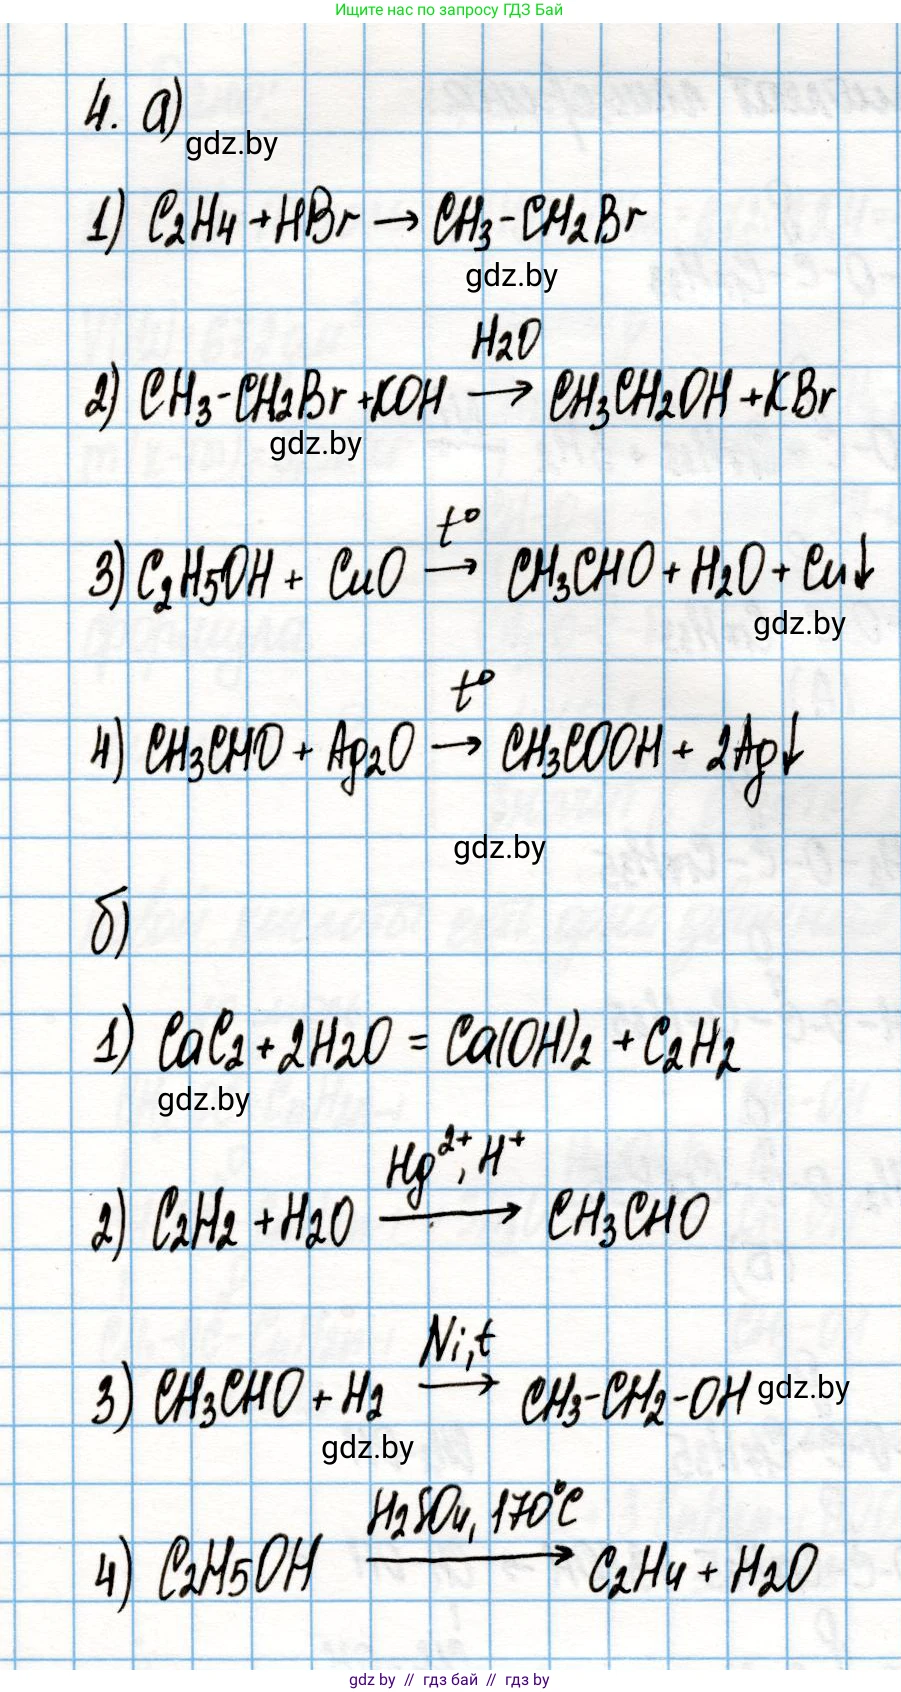 Ищите нас по запросу ГДЗ Бай
4. а)
gdz.by
1) C2H4 + HBr → CH3-CH2Br
gdz.by
H2O
2) CH3-CH2Br + KOH → CH3CH2OH + KBr
gdz.by
t°
3) C2H5OH + CuO → CH3CHO + H2O + Cu↓
gdz.by
t°
4) CH3CHO + Ag2O → CH3COOH + 2Ag↓
gdz.by
б)
1) CaC2 + 2H2O = Ca(OH)2 + C2H2
gdz.by
Hg2+, H+
2) C2H2 + H2O → CH3CHO
Ni, t
3) CH3CHO + H2 → CH3-CH2-OH gdz.by
gdz.by
H2SO4, 170°C
4) C2H5OH → C2H4 + H2O
gdz by // гдз бай // gdz by